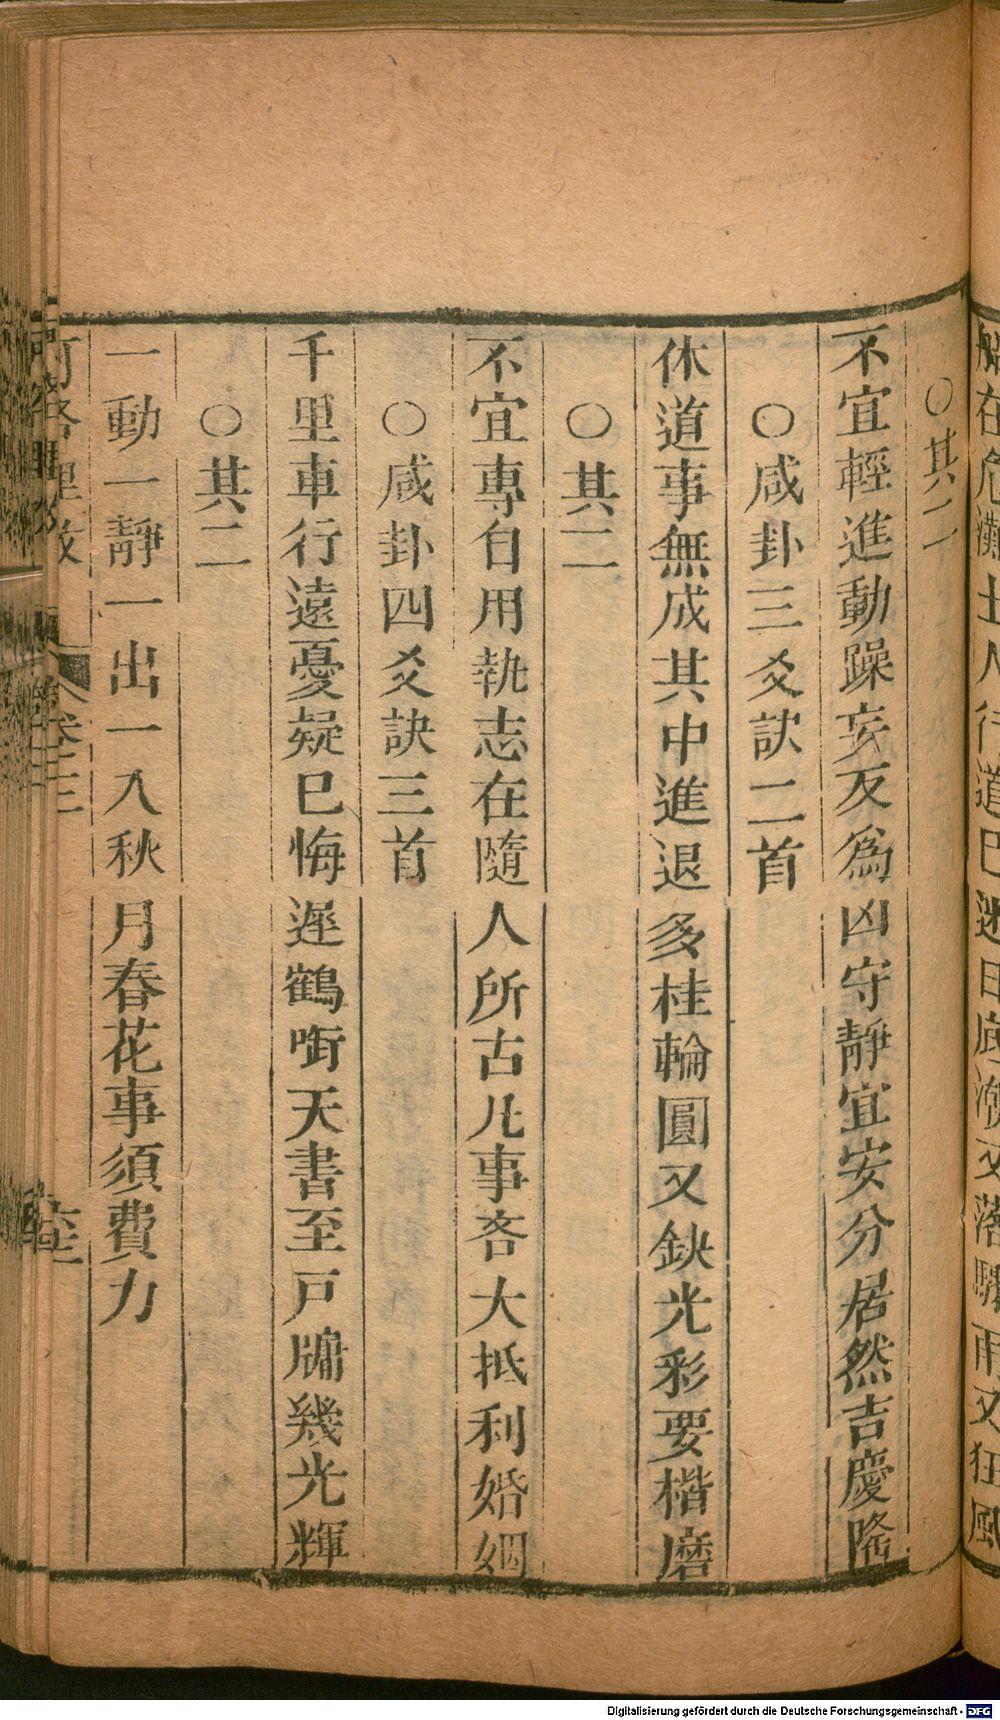 在危灘上人行道巳迷目底波文落驟雨又狂風
○其二
不宜輕進動躁妄反爲凶守靜宜安分居然吉慶隆
○咸卦三爻訣二首
休道事無成其中進退多桂輪圓又缺光彩要楷磨
○其二
不宜專自用執志在隨人所古凡事吝大抵利婚姻
○咸卦四爻訣三首
千里車行遠憂疑巳悔遲鶴啣天書至戸牖幾光輝
○其二
一動一靜一出一入秋月春花事須費力
河洛理數 卷三
Digitalisierung gefördert durch die Deutsche Forschungsgemeinschaft - DFG